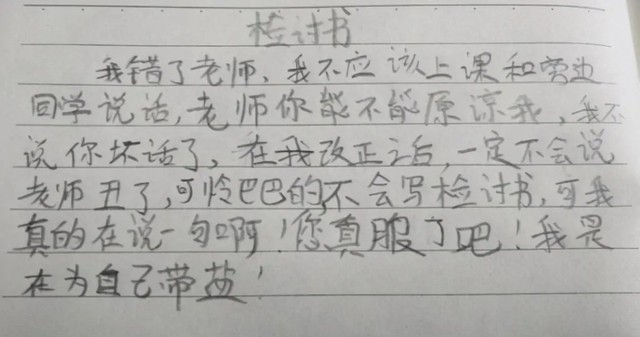 检讨书
我错了老师、我不应该上课和旁边
同学说话,老师你能不能原谅我,我不
说你坏话了,在我改正之后,一定不会说
老师丑了,可怜巴巴的不会写检讨书,可我
真的在说一句啊!您真服了吧!我是
在为自己带盐!